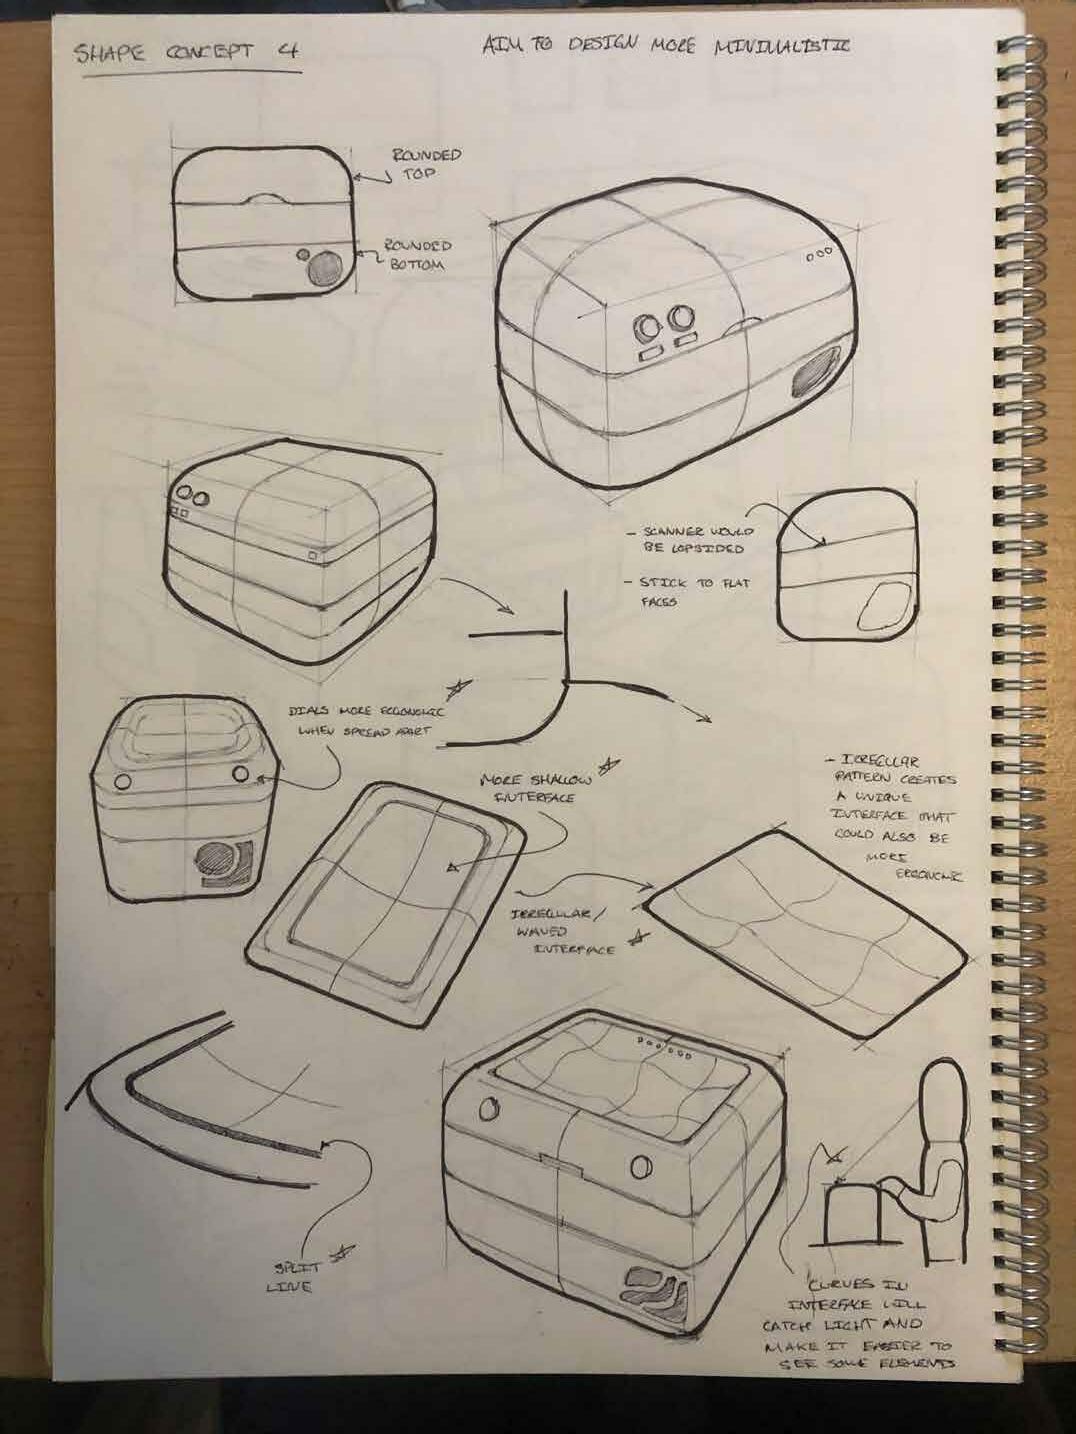 SHAPE CONCEPT 4
AIM TO DESIGN MORE MINIMALISTIC
ROUNDED
TOP
ROUNDED
BOTTOM
- SCANNER WOULD
BE LOPSIDED
- STICK TO FLAT
FACES
DIALS MORE ERGONOMIC
WHEN SPREAD APART
MORE SHALLOW
INTERFACE
- IRREGULAR
PATTERN CREATES
A UNIQUE
INTERFACE THAT
COULD ALSO BE
MORE
ERGONOMIC
IRREGULAR/
WAVED
INTERFACE
SPLIT
LINE
CURVES IN
INTERFACE WILL
CATCH LIGHT AND
MAKE IT EASIER TO
SEE SOME ELEMENTS